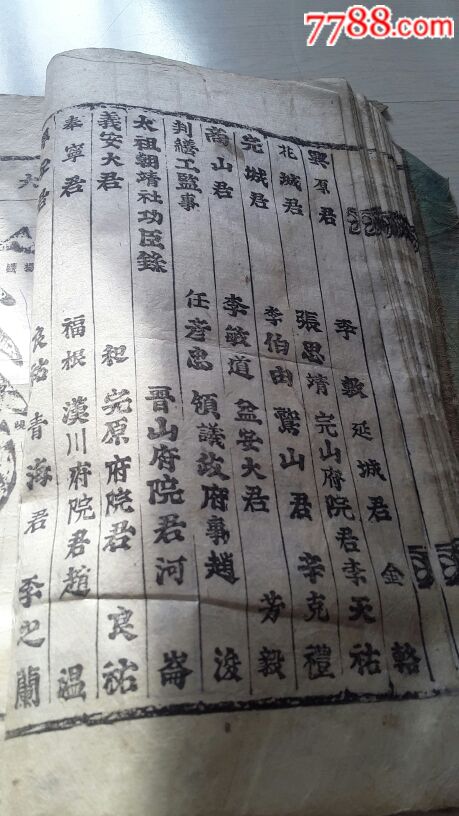 7788.com
李敷 延城君 金輅
興原君 張思靖 完山府院君李天祐
花城君 李伯由 鷲山君 辛克禮
完城君 李敏道 益安大君 芳毅
嵩山君 領議政府事趙浚
判繕工監事 任彦忠 晋山府院君河崙
太祖朝靖社功臣錄
義安大君 和 完原府院君 良祐
奉寧君 福根 漢川府院君趙溫
青海君 李之蘭